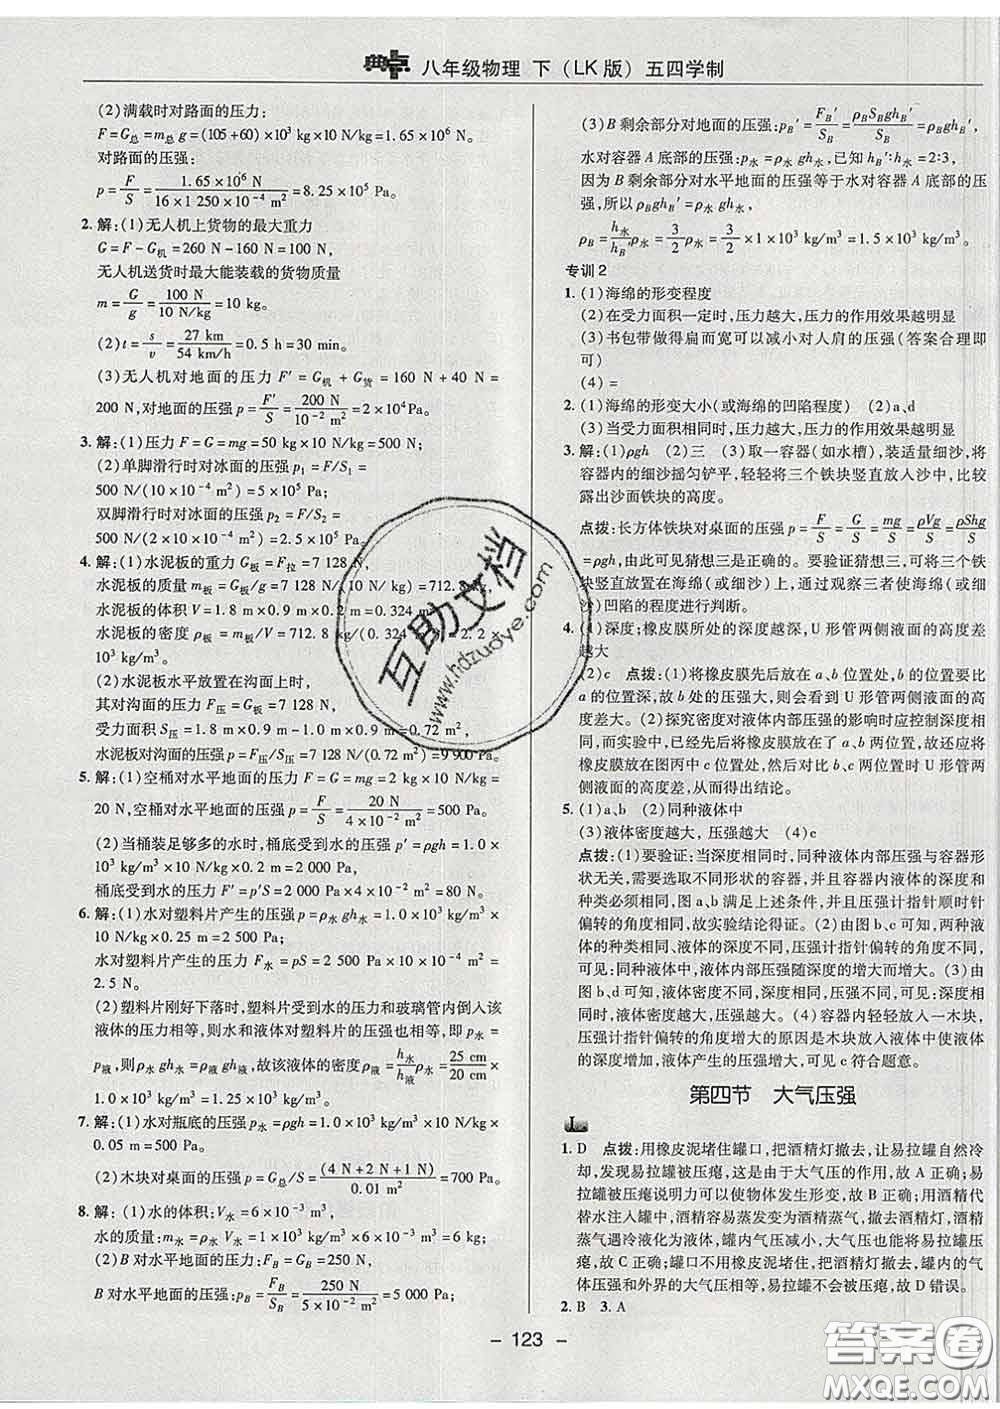 典点 八年级物理 下（LK版）五四学制
(2)满载时对路面的压力：
F=G总=m总 g=(105+60)×10³ kg×10 N/kg=1.65×10⁶ N。
对路面的压强：
p=F/S=1.65×10⁶ N/16×1 250×10⁻⁴ m²=8.25×10⁵ Pa。
2. 解：(1)无人机上货物的最大重力
G=F-G机=260 N-160 N=100 N，
无人机送货时最大能装载的货物质量
m=G/g=100 N/10 N/kg=10 kg。
(2)t=s/v=27 km/54 km/h=0.5 h=30 min。
(3)无人机对地面的压力 F′=G机+G货=160 N+40 N=
200 N，对地面的压强 p=F′/S=200 N/10⁻² m²=2×10⁴Pa。
3. 解：(1)压力 F=G=mg=50 kg×10 N/kg=500 N；
(2)单脚滑行时对冰面的压强 p₁=F/S₁=
500 N/(10×10⁻⁴ m²)=5×10⁵ Pa；
双脚滑行时对冰面的压强 p₂=F/S₂=
500 N/(2×10×10⁻⁴ m²)=2.5×10⁵ Pa。
4. 解：(1)水泥板的重力 G板=F拉=7 128 N，
水泥板的质量 m板=G板/g=7 128 N/(10 N/kg)=712.8
水泥板的体积 V=1.8 m×0.9 m×0.2 m=0.324 m³
水泥板的密度 ρ板=m板/V=712.8 kg/(0.324 m³)=2.2×
10³ kg/m³。
(2)水泥板水平放置在沟面上时，
其对沟面的压力 F压=G板=7 128 N，
受力面积 S压=1.8 m×0.9 m-1.8 m×0.5 m=0.72 m²，
水泥板对沟面的压强 p=F压/S压=7 128 N/(0.72 m²)=9 900 Pa。
5. 解：(1)空桶对水平地面的压力 F=G=mg=2 kg×10 N/kg=
20 N，空桶对水平地面的压强 p=F/S=20 N/4×10⁻² m²=500 Pa。
(2)当桶装足够多的水时，桶底受到水的压强 p′=ρgh=1.0×
10³kg/m³×10 N/kg×0.2 m=2 000 Pa，
桶底受到水的压力 F′=p′S=2 000 Pa×4×10⁻² m²=80 N。
6. 解：(1)水对塑料片产生的压强 p水=ρ水 gh水=1.0×10³ kg/m³×10
N/kg×0.25 m=2 500 Pa，
水对塑料片产生的压力 F水=pS=2 500 Pa×10×10⁻⁴ m²=
2.5 N。
(2)塑料片刚好下落时，塑料片受到水的压力和玻璃管内倒入该
液体的压力相等，则水和液体对塑料片的压强也相等，即 p水=
p液，所以 ρ水 gh水=ρ液gh液，故该液体的密度ρ液=h水/h液 ρ水=25 cm/20 cm×
1.0×10³ kg/m³=1.25×10³ kg/m³。
7. 解：(1)水对瓶底的压强 p水=ρgh=1.0×10³ kg/m³×10
N/kg×0.12 m=1 200 Pa；
(2)木块对桌面的压强 p=G总/S=(4 N+2 N+1 N)/0.01 m²=700 Pa。
8. 解：(1)水的体积：V水=6×10⁻³ m³，
水的质量：m水=ρ水 V水=1×10³ kg/m³×6×10⁻³ m³=6 kg；
(2)B 对水平地面的压力：F_B=G_B=250 N，
B 对水平地面的压强：p_B=F_B/S_B=250 N/5×10⁻² m²=5 000 Pa；
(3)B 剩余部分对地面的压强：p_B′=F_B′/S_B=ρ_B S_B gh_B′/S_B=ρ_B gh_B′，
水对容器 A 底部的压强：p水=ρ水 gh水，已知 h_B′∶h水=2∶3，
因为 B 剩余部分对水平地面的压强等于水对容器 A 底部的压
强，所以 ρ_B gh_B′=ρ水 gh水，
ρ_B=h水/h_B′ ρ水=3/2 ρ水=3/2×1×10³ kg/m³=1.5×10³ kg/m³。
专训2
1. (1)海绵的形变程度
(2)在受力面积一定时，压力越大，压力的作用效果越明显
(3)书包带做得扁而宽可以减小对人肩的压强(答案合理即
可)
(4)=
2. (1)海绵的形变大小(或海绵的凹陷程度) (2)a、d
(3)当受力面积相同时，压力越大，压力作用效果越明显
3. 解：(1)ρgh (2)三 (3)取一容器(如水槽)，装适量细沙，将
容器内的细沙摇匀铲平，轻轻将三个铁块竖直放入沙中，比较
露出沙面铁块的高度。
点拨：长方体铁块对桌面的压强 p=F/S=G/S=mg/S=ρVg/S=ρShg/S
=ρgh，由此可见猜想三是正确的。要验证猜想三，可将三个铁
块竖直放在海绵(或细沙)上，通过观察三者使海绵(或细
沙)凹陷的程度进行判断。
4. (1)深度；橡皮膜所处的深度越深，U 形管两侧液面的高度差
越大
(2)c 点拨：(1)将橡皮膜先后放在 a、b 位置处，b 的位置要比
a 的位置深，故 b 处的压强大，则会看到 U 形管两侧液面的高
度差大。(2)探究密度对液体内部压强的影响时应控制深度相
同，而实验中，已经将橡皮膜放在了 a、b 两位置，故还应再将
橡皮膜放在图丙中 c 位置处，并与 b 位置处比较，观察 U 形管两
侧液面的高度差，从而得出结论。
5. (1)a、b (2)同种液体中
(3)液体密度越大，压强越大 (4)c
点拨：(1)要验证：当深度相同时，同种液体内部压强与容器形
状无关，需要选取不同形状的容器，并且容器内液体的深度和
种类必须相同，图 a、b 满足上述条件，并且压强计指针顺时针
偏转的角度相同，故实验结论得证。(2)由图 b、c 可知，两种液
体的种类相同，液体的深度不同，压强计指针偏转的角度不同，
可见：同种液体，液体内部压强随深度的增大而增大。(3)由
图 b、d 可知，液体的种类不同，深度相同，压强不同，可见液体的
压强和液体的密度有关。(4)容器内轻轻放入一木块，
压强计指针偏转的角度增大的原因是木块放入液体中使液体
的深度增加，液体产生的压强增大，可见 c 符合题意。
第四节 大气压强
1. D 点拨：用橡皮泥堵住罐口，把酒精灯撤去，让易拉罐自然冷
却，发现易拉罐被压瘪，这是由于大气压的作用，故 A 正确；易
拉罐被压瘪说明力可以使物体发生形变，故 B 正确；用酒精代
替水注入罐中，酒精易蒸发变为酒精蒸气，撤去酒精灯，酒精
蒸气遇冷液化为液体，罐内气压降低，大气压仍然会将罐压
瘪，故 C 正确；罐口不用橡皮泥堵住，把酒精灯撤去，罐内的气
体压强和外界的大气压相等，易拉罐不会被压瘪，故 D 错误。
2. B 3. A
- 123 -
互助文档
www.hdzuoye.com
答案圈
MXQE.COM